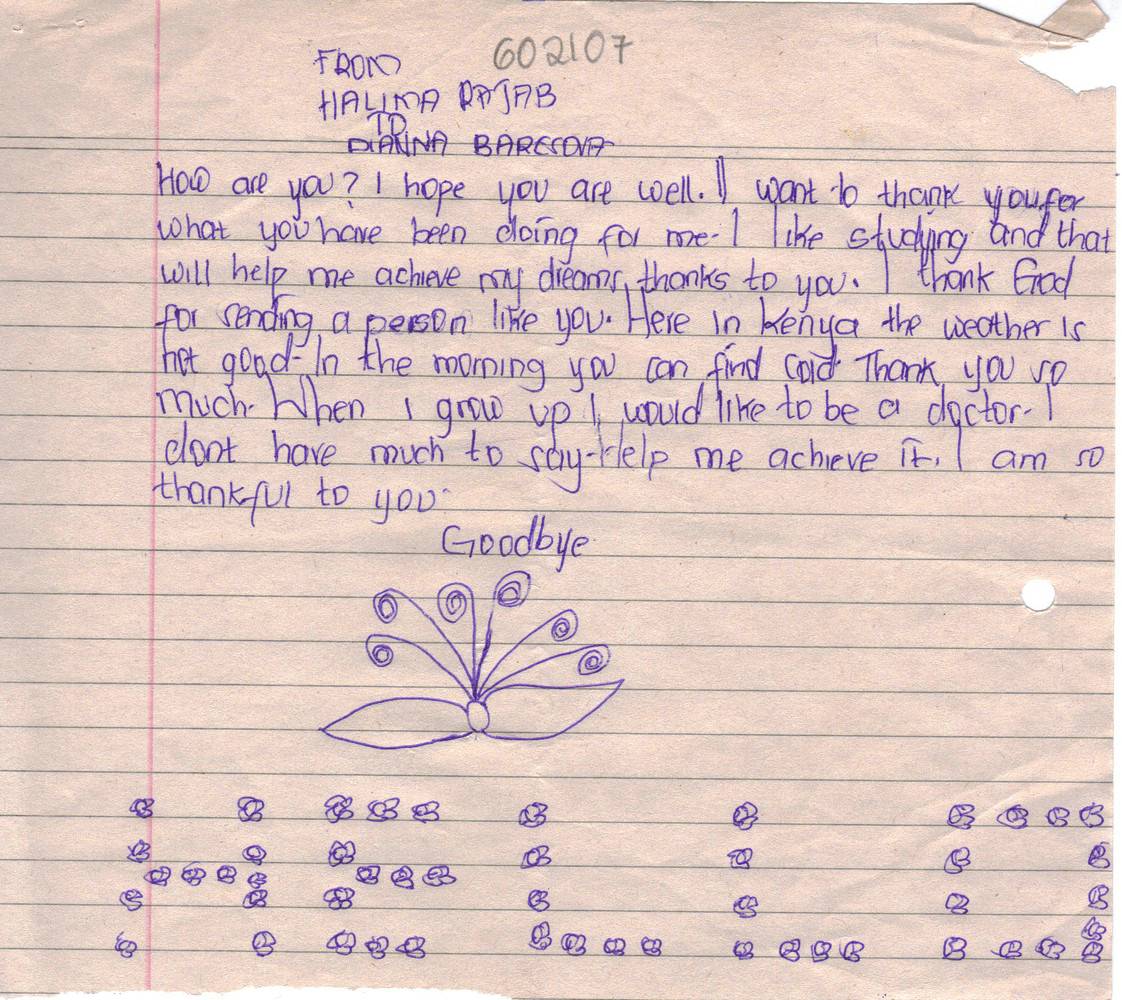 602107
FROM
HALIMA RAJAB
TO
DIANNA BARESOVA
How are you? I hope you are well. I want to thank you for
what you have been doing for me. I like studying and that
will help me achieve my dreams, thanks to you. I thank God
for sending a person like you. Here in Kenya the weather is
not good. In the morning you can find cold. Thank you so
much. When I grow up I would like to be a doctor. I
dont have much to say. Help me achieve it. I am so
thankful to you.
Goodbye
HELLO